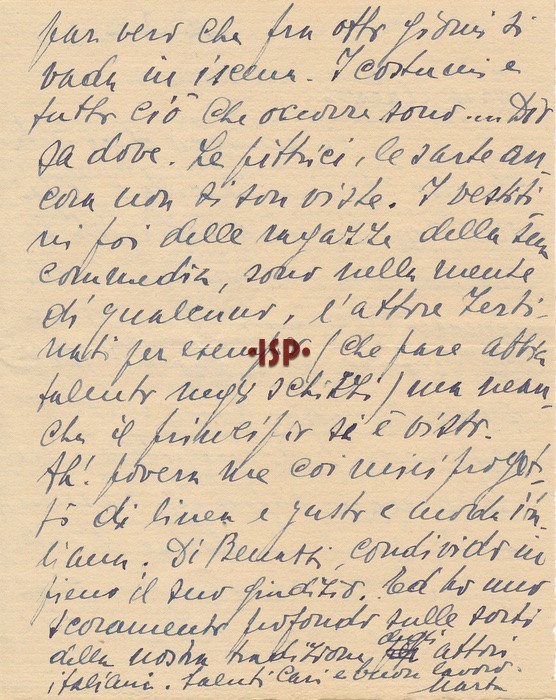 par vero che fra otto giorni si
vada in iscena. I costumi e
tutto ciò che occorre sono .... Dio
sa dove. Le pittrici, le sarte an-
cora non si son viste. I vestiti
mi poi delle ragazze della sua
commedia, sono nella mente
di qualcuno, l'attore Zerti-
nati per esempio (che pare abbia
·ISP·
talento negli schizzi) ma nean-
che il principio si è visto.
Ah! povera me coi miei proget-
ti di linea e gusto e moda ita-
liana. Di Benatti, condivido in
pieno il suo giudizio. Ed ho uno
scoramento profondo sulle sorti
della nostra tradizione, degli attori
italiani. Saluti cari e buon lavoro.
Marta